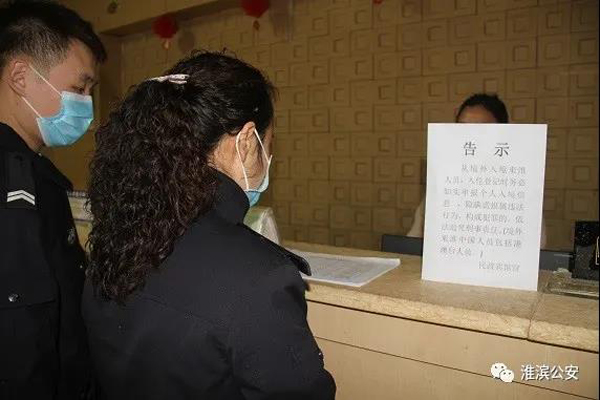 告 示
从境外入境来淮
人员，入住登记时务必
如实申报个人入境信
息。隐瞒谎报属违法
行为，构成犯罪的，依
法追究刑事责任。(境外
来 中国人员包括港
澳台人员。)
淮滨公安